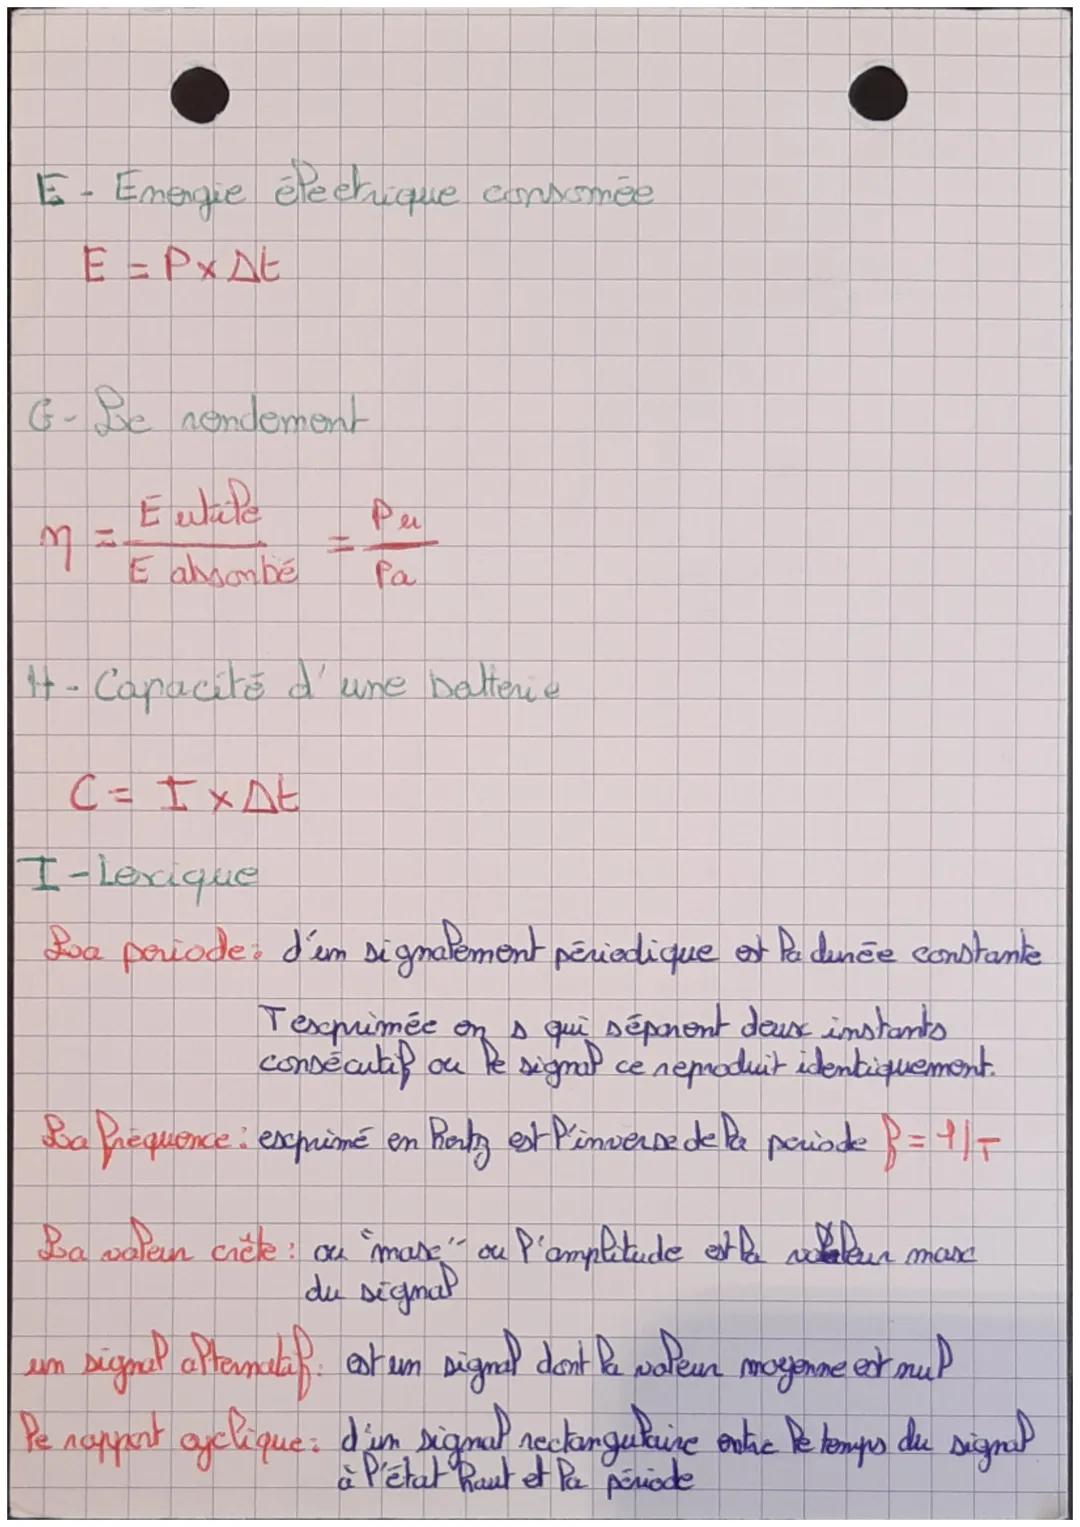 E - Energie électrique consomée
E = P x Δt
G - Le rendement
η = E utile / E absorbé = Pu / Pa
H - Capacité d'une batterie
C = I x Δt
I - Lexique
La periode : d'un signalement périodique est la durée constante
T exprimée en s qui séparent deux instants
consécutif ou le signal ce reproduit identiquement.
La fréquence : exprimé en Hertz est l'inverse de la période f = 1/T
La valeur crête : ou "max" ou l'amplitude est la valeur max
du signal
un signal alternatif : est un signal dont la valeur moyenne est nul
le rapport cyclique : d'un signal rectangulaire entre le temps du signal
à l'état haut et la période